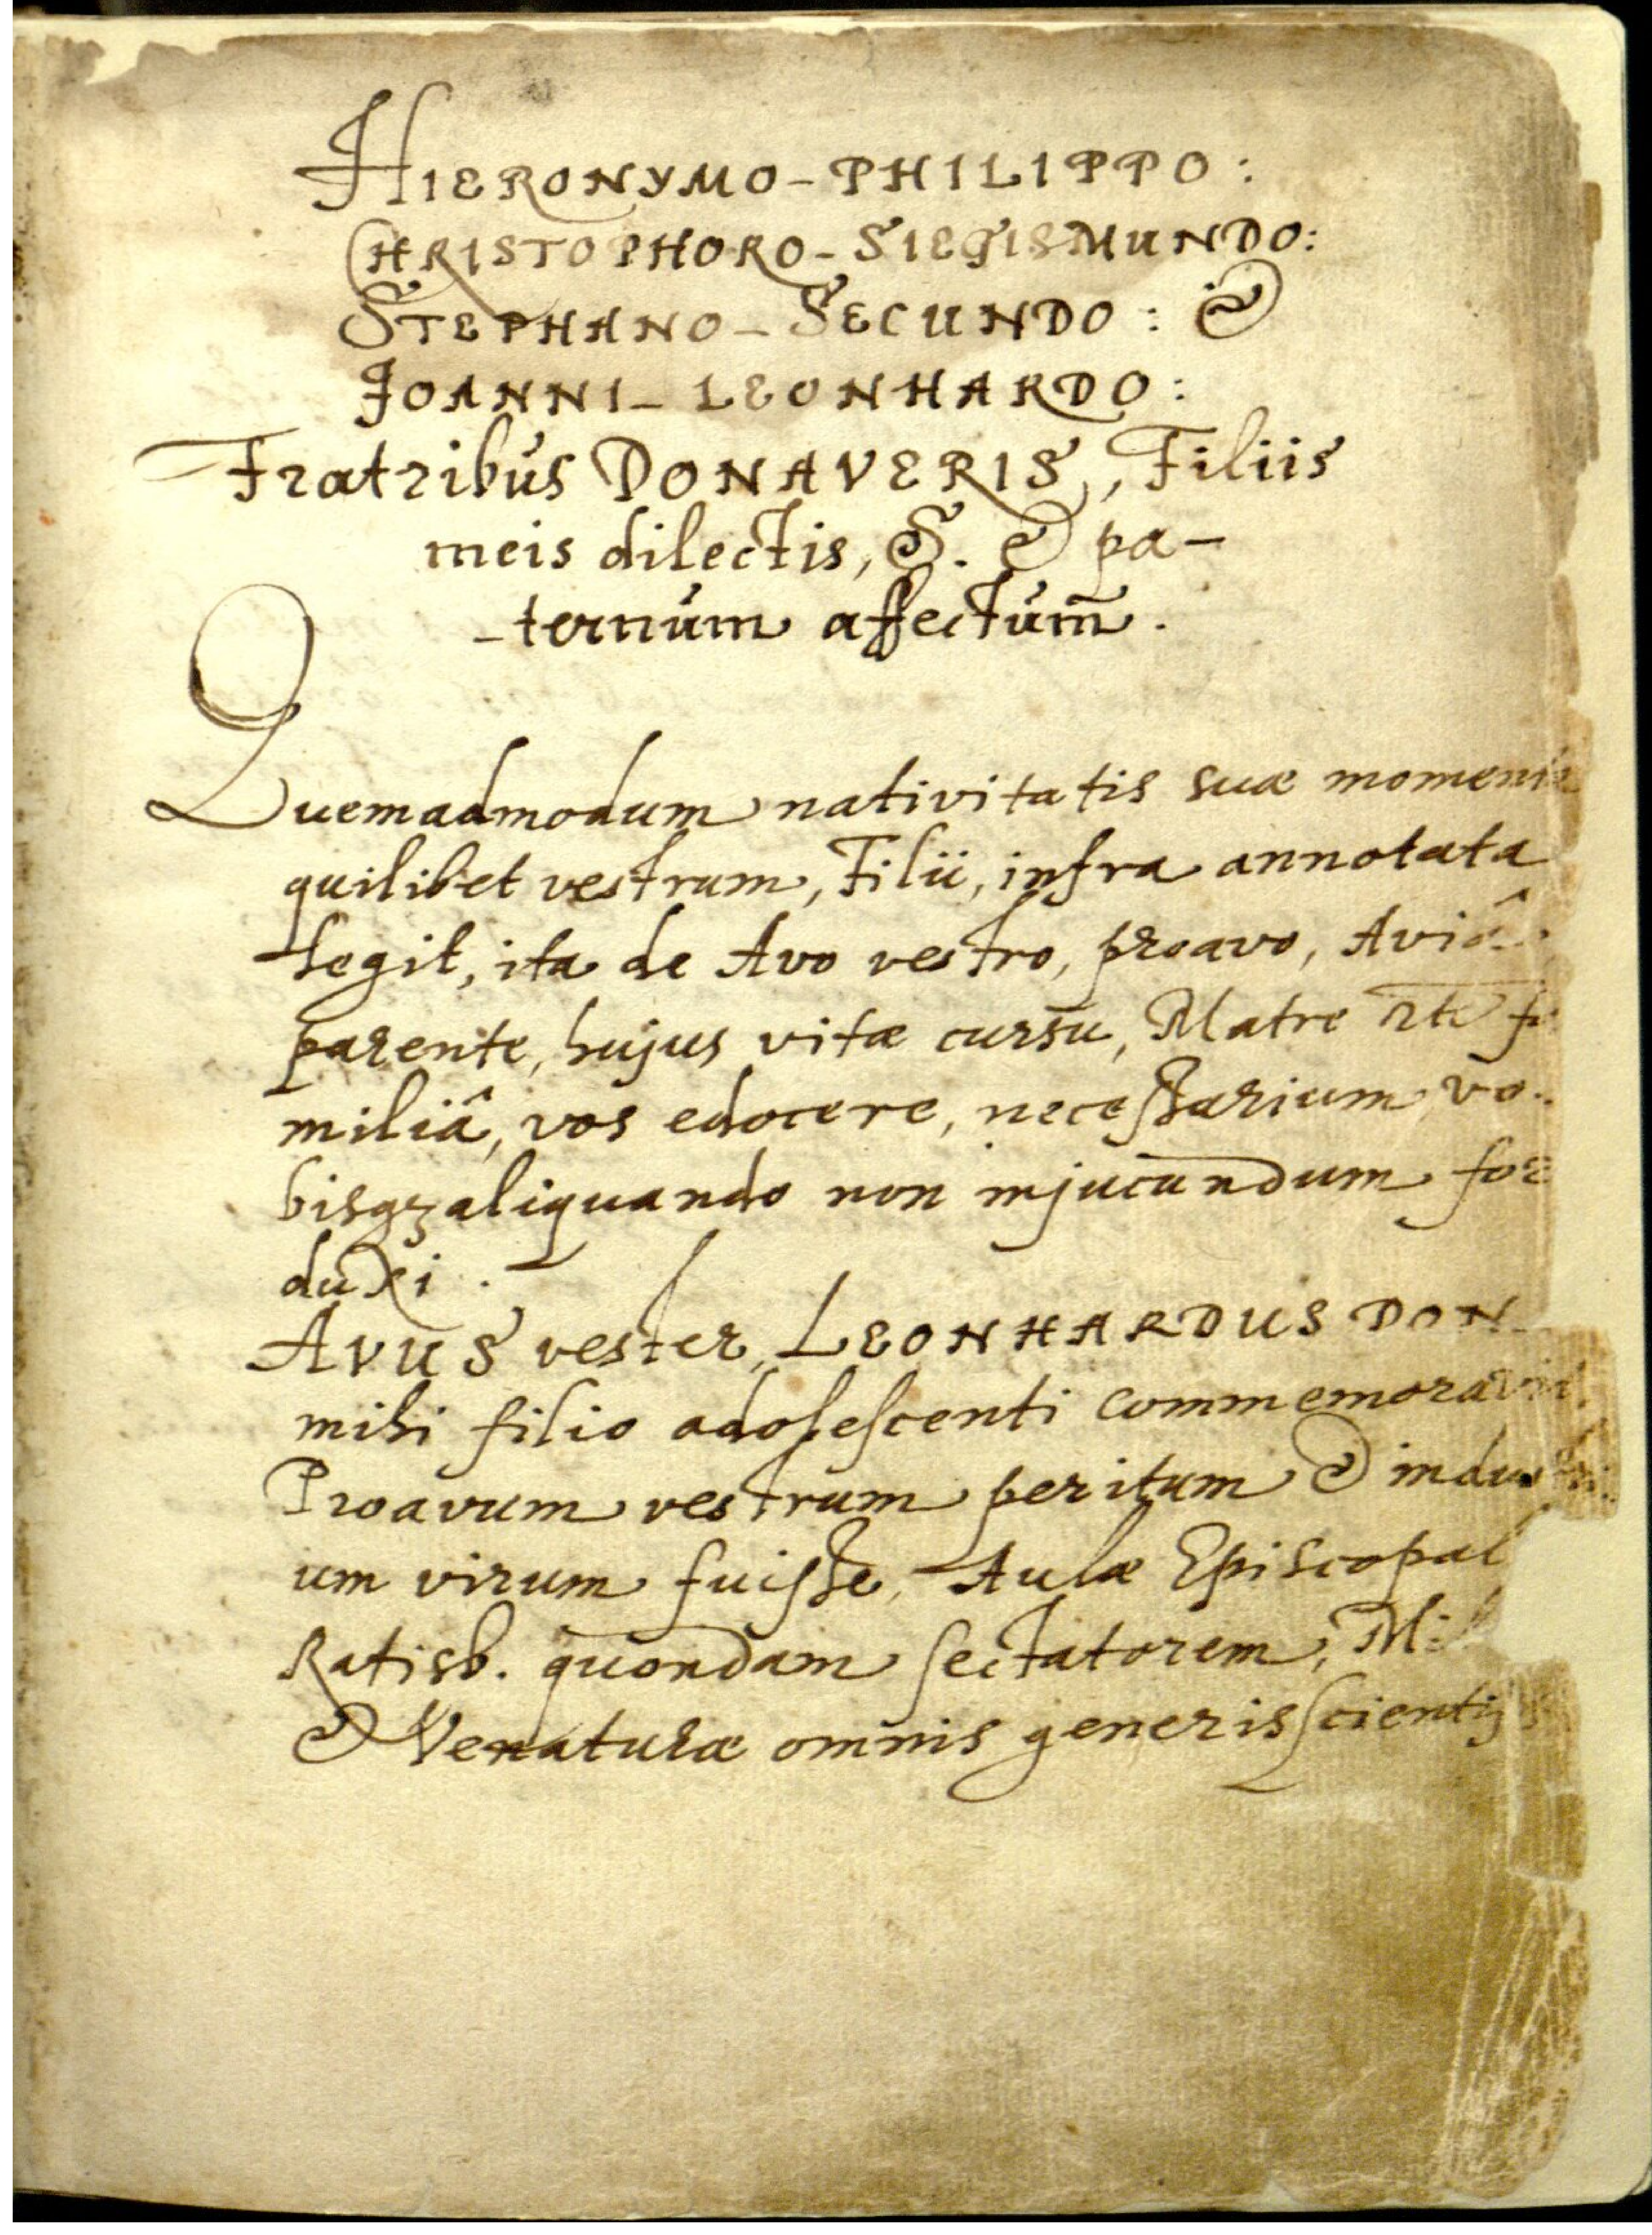 HIERONYMO - PHILIPPO :
CHRISTOPHORO - SIEGISMUNDO :
STEPHANO - SECUNDO : &
JOANNI - LEONHARDO :
Fratribus DONAVERIS, Filiis
meis dilectis, S. & pa-
-ternum affectum̄.
Quemadmodum nativitatis suæ momenta
quilibet vestrum, Filii, infra annotata
legit, ita de Avo vestro, proavo, Aviâ,
parente, hujus vitæ cursu, Matre
miliâ, vos edocere, necessarium vo-
bisqz aliquando non injucundum
duxi.
AVUS vester, LEONHARDUS DON
mihi filio adolescenti commemoravit
Proavum vestrum peritum & indus
um virum fuisse, Aulæ Episcopal
Ratisb. quondam sectatorem,
& Venaturæ omnis generis